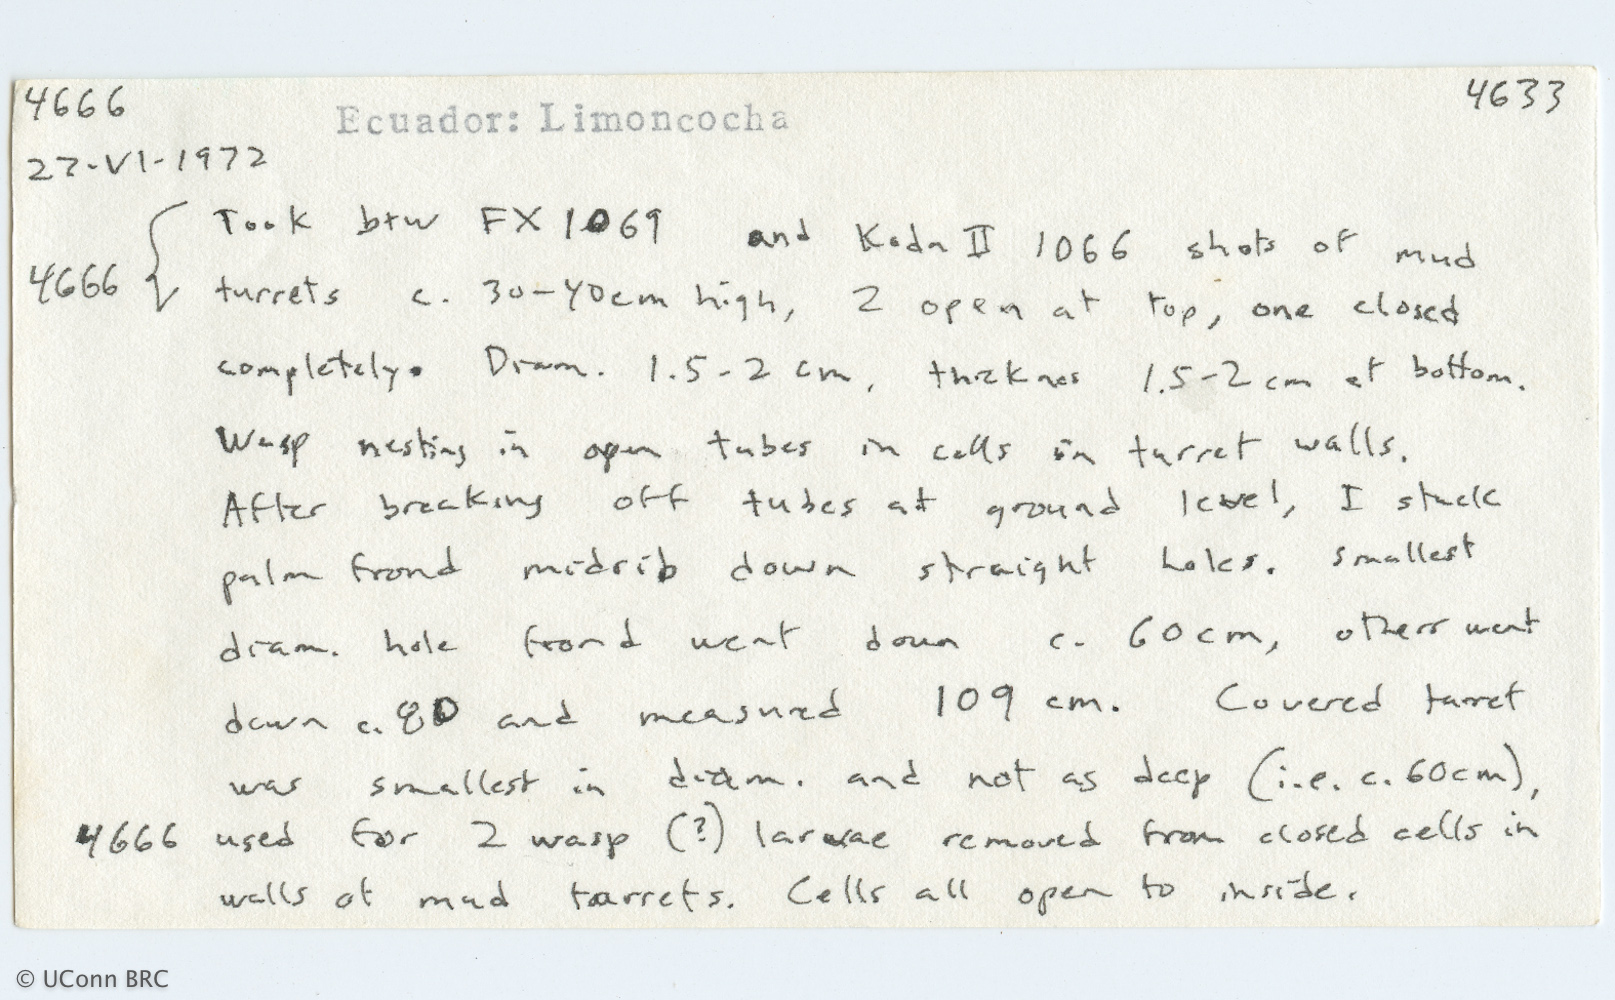 4666
Ecuador: Limoncocha
4633
27-VI-1972
Took btw FX 1069 and Koda II 1066 shots of mud
4666 { turrets c. 30-40cm high, 2 open at top, one closed
completely. Diam. 1.5-2 cm, thicknes 1.5-2 cm at bottom.
Wasp nesting in open tubes in cells in turret walls.
After breaking off tubes at ground level, I stuck
palm frond midrib down straight holes. smallest
diam. hole frond went down c. 60cm, others went
down c. 80 and measured 109 cm. Covered turret
was smallest in diam. and not as deep (i.e. c. 60cm),
4666 used for 2 wasp (?) larvae removed from closed cells in
walls of mud turrets. Cells all open to inside.
© UConn BRC